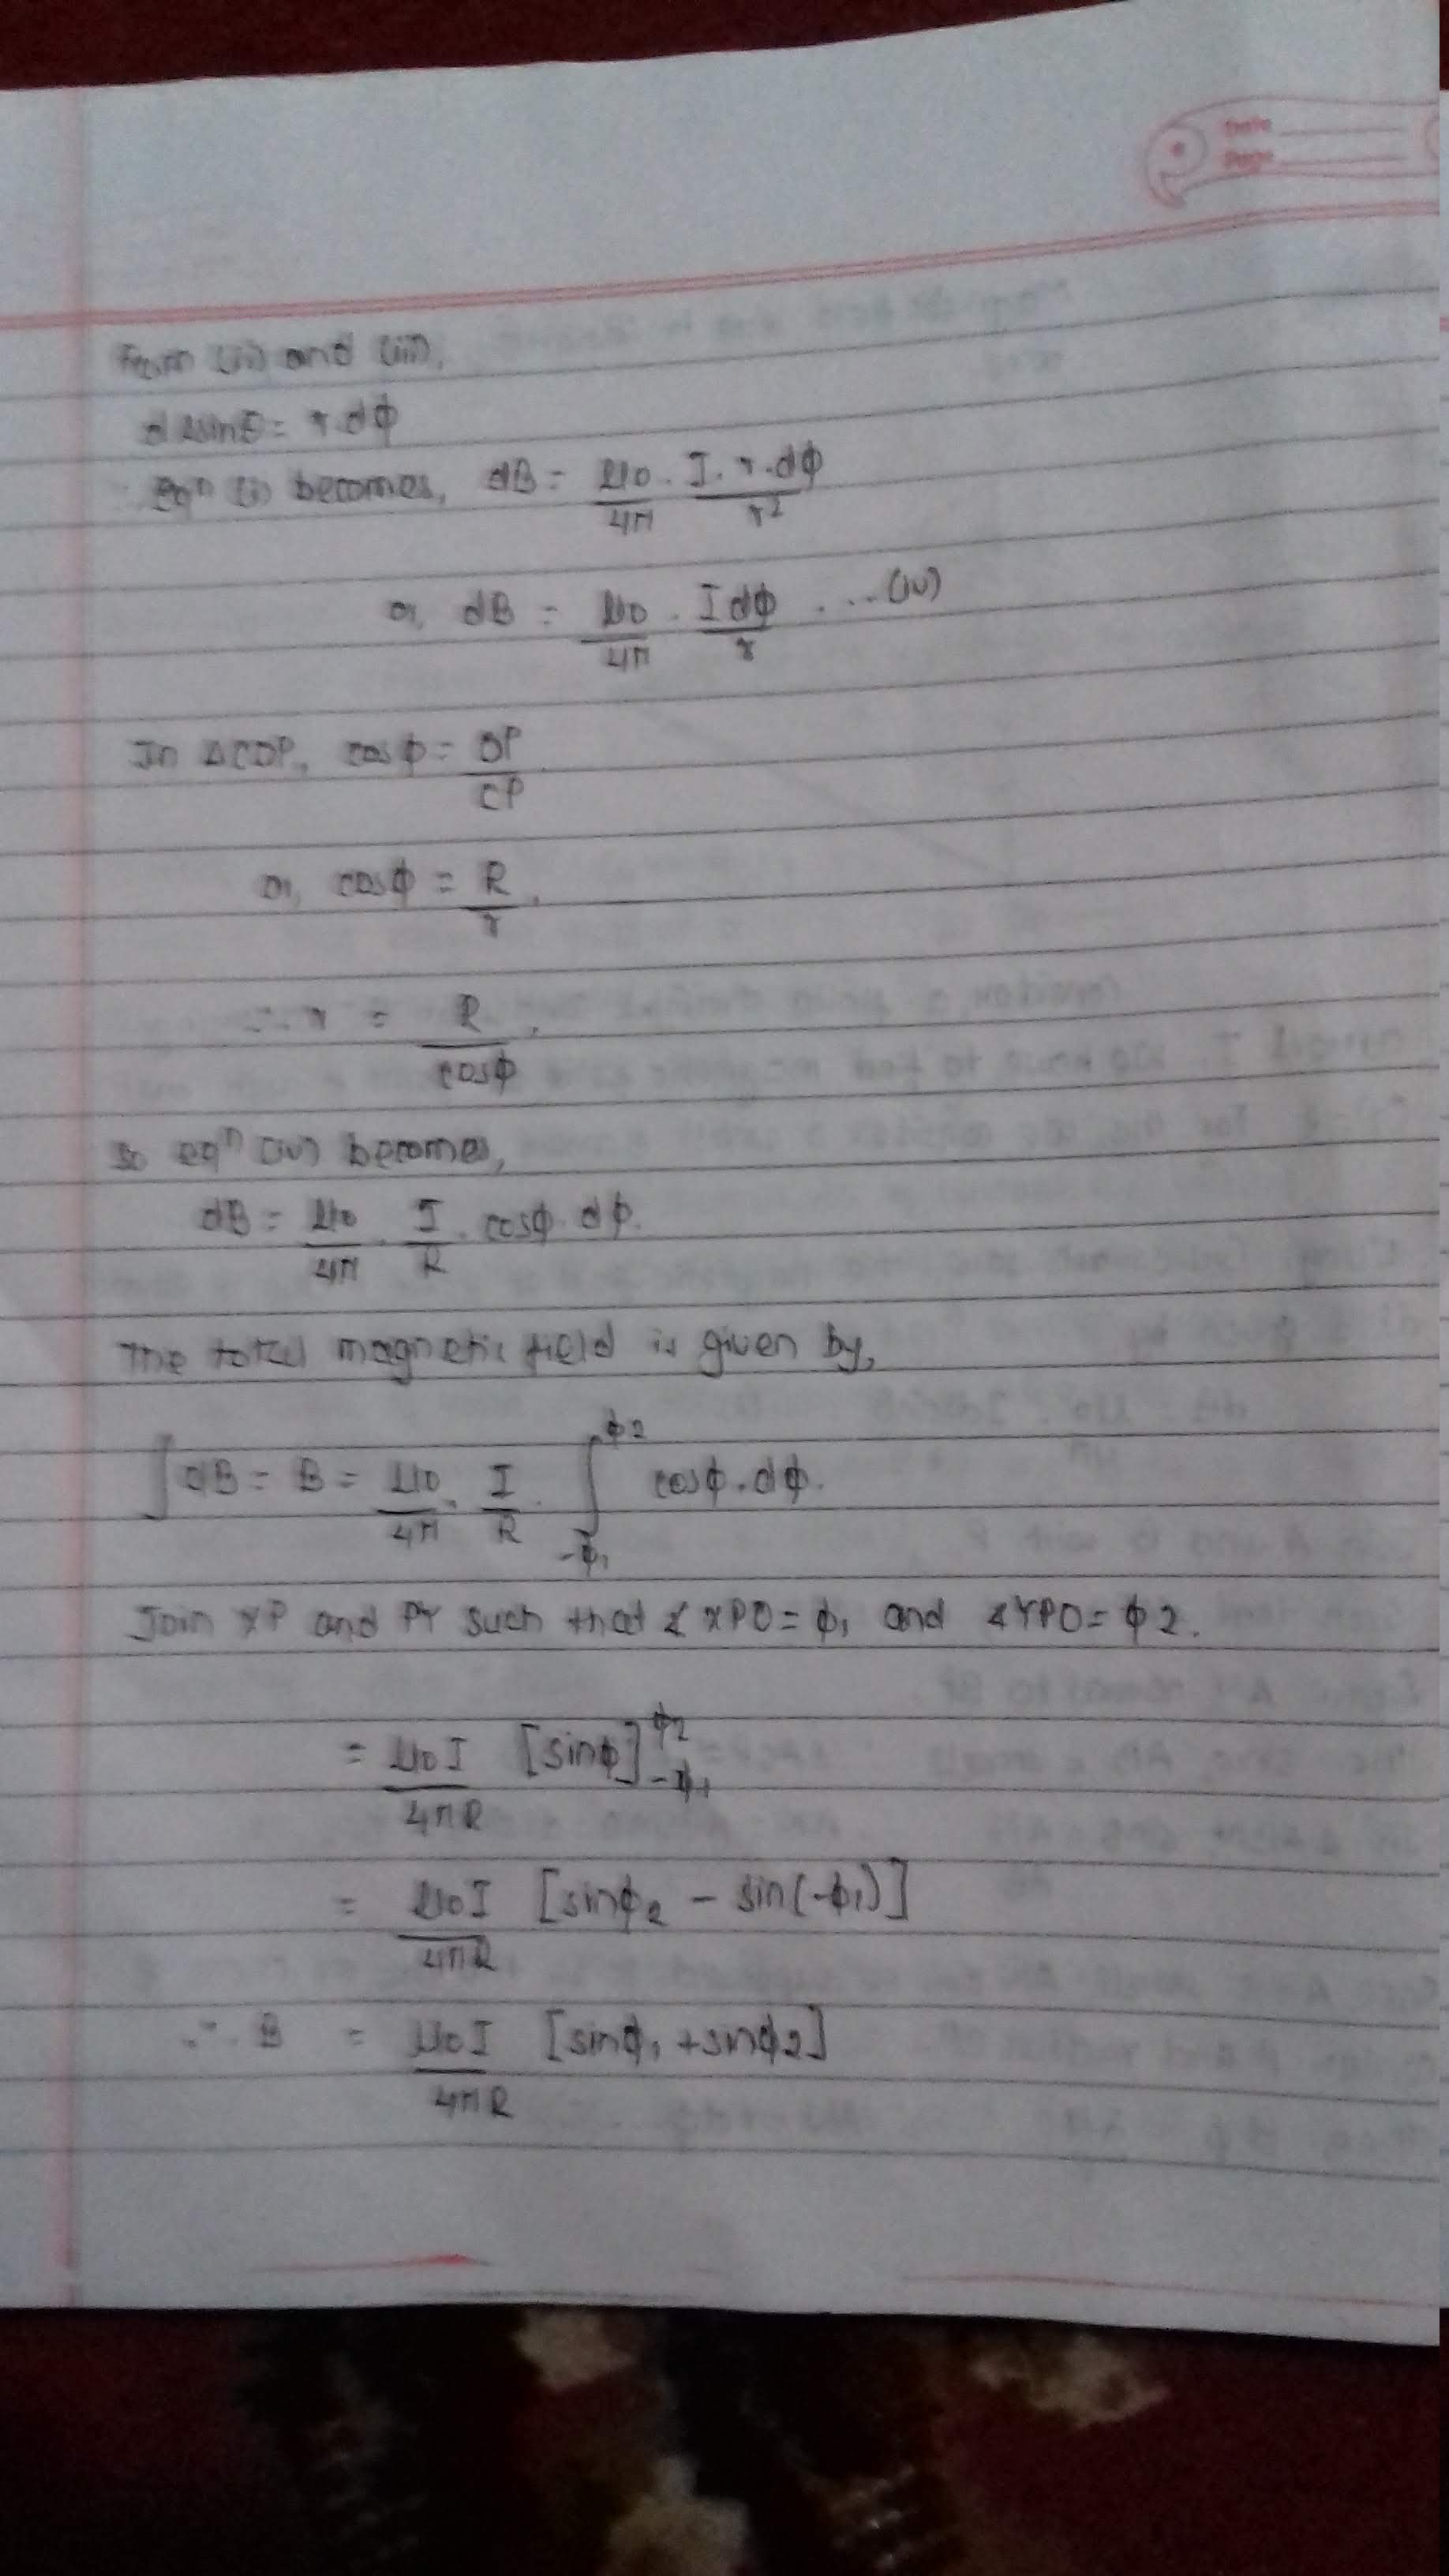 Date
Page
From (ii) and (iii),
dl sinθ = r.dϕ
Eqⁿ (i) becomes, dB = μ0/4π . I.r.dϕ/r²
or, dB = μ0/4π . Idϕ/r ... (iv)
In ΔCOP, cosϕ = OP/CP
or, cosϕ = R/r
∴ r = R/cosϕ
So eqⁿ (iv) becomes,
dB = μ0/4π . I/R . cosϕ. dϕ.
The total magnetic field is given by,
∫dB = B = μ0/4π . I/R . ∫_{-ϕ₁}^{ϕ2} cosϕ.dϕ.
Join XP and PY such that ∠XPO = ϕ₁ and ∠YPO = ϕ2.
= μ0I/4πR [sinϕ]_{-ϕ₁}^{ϕ2}
= μ0I/4πR [sinϕ₂ - sin(-ϕ₁)]
∴ B = μ0I/4πR [sinϕ₁ + sinϕ2]